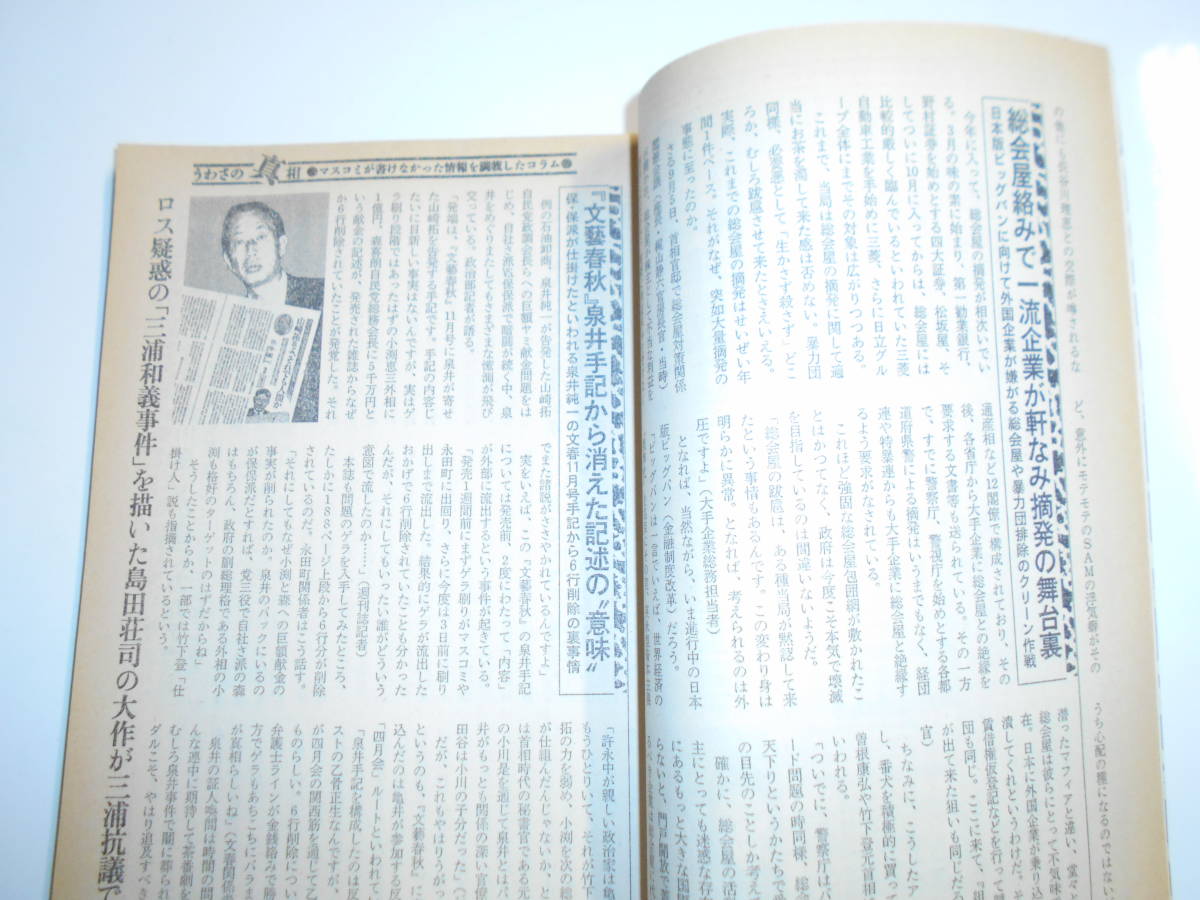 総会屋絡みで一流企業が軒なみ摘発の舞台裏
日本版ビッグバンに向けて外国企業が嫌がる総会屋や暴力団排除のクリーン作戦
今年に入って、総会屋の摘発が相次いでい
る。3月の味の素に始まり、第一勧業銀行、
野村証券を始めとする四大証券、松坂屋、そ
してついに10月に入ってからは、総会屋には
比較的厳しく臨んでいるといわれていた三菱
自動車工業を手始めに三菱、さらに日立グル
ープ全体にまでその対象は広がりつつある。
これまで、当局は総会屋の摘発に関して適
当にお茶を濁して来た感は否めない。暴力団
同様、必要悪として「生かさず殺さず」どこ
ろか、むしろ跋扈させて来たとさえいえる。
実際、これまでの総会屋の摘発はせいぜい年
間1件ペース。それがなぜ、突如大量摘発の
事態に至ったのか。
さる9月5日、首相官邸で「総会屋対策関係
通産相など12閣僚で構成されており、その
後、各省庁から大手企業に総会屋との絶縁を
要求する文書等も送られている。その一方
で、すでに警察庁、警視庁を始めとする各都
道府県警による摘発はいうまでもなく、経団
連や特暴連からも大手企業に総会屋と絶縁す
るよう要求がなされている。
これほど強固な総会屋包囲網が敷かれたこ
とはかつてなく、政府は今度こそ本気で壊滅
を目指しているのは間違いないようだ。
「総会屋の跋扈は、ある種当局が黙認して来
たという事情もあるんです。この変わり身は
明らかに異常。となれば、考えられるのは外
圧ですよ」（大手企業総務担当者）
となれば、当然ながら、いま進行中の日本
版ビッグバン（金融制度改革）だろう。
「ビッグバンは一言でいえば、世界経済の
潜ったマフィアと違い、堂々と
総会屋は彼らにとって不気味で
在。日本に外国企業が乗り込
潰してくれというわけだ。そ
賃借権仮登記などを行って
が出て来た狙いも同じだろ
団も同じ。ここに来て、『組
官）
ちなみに、こうしたア
し、番犬を積極的に買って
曽根康弘や竹下登元首相
いわれる。
「ついでに、警察庁はパ
ード問題の時同様、総会
天下りというかたちで受
の目先のことしか考えて
確かに、総会屋の活
主にとっても迷惑な存
にあるもっと大きな国際
らないと、門戸開放＝善
うわさの真相 ●マスコミが書けなかった情報を満載したコラム●
『文藝春秋』泉井手記から消えた記述の“意味”
保・保派が仕掛けたといわれる泉井純一の文春11月号手記から6行削除の裏事情
例の石油卸商、泉井純一が告発した山崎拓
自民党政調会長らへの巨額ヤミ献金問題をは
じめ、自社さ派VS保保派で暗闘が続く中、泉
井をめぐりまたしてもさまざまな憶測が飛び
交っている。政治部記者が語る。
「発端は、『文藝春秋』11月号に泉井が寄せ
た山崎拓を告発する手記です。手記の内容じ
たいに目新しい事実はないんですが、実はゲ
ラ刷りの段階ではあったはずの小渕恵三外相に
1億円、森喜朗自民党総務会長に5千万円と
いう献金の記述が、発売された雑誌からなぜ
か6行削除されていたことが発覚した。それ
でまた諸説がささやかれているんですよ」
実をいえば、この『文藝春秋』の泉井手記
については発売前、2度にわたって〝内容〟
が外部に流出するという事件が起きている。
「発売1週間前にまずゲラ刷りがマスコミや
永田町に出回り、さらに今度は3日前に刷り
出しまで流出した。結果的にゲラが流出した
おかげで6行削除されていたことも分かった
んだが、それにしてもいったい誰がどういう
意図で流したのか……」（週刊誌記者）
本誌も問題のゲラを入手してみたところ、
たしかに188ページ上段から6行分が削除
されているのだ。永田町関係者はこう話す。
「それにしてもなぜ小渕と森への巨額献金の
事実が削られたのか。泉井のバックにいるの
が保保派だとすれば、党三役で自社さ派の森
はもちろん、政府の副総理格である外相の小
渕も格好のターゲットのはずだからね」
そうしたことからか、一部では竹下登〝仕
掛け人〟説も指摘されているという。
「許永中が親しい政治家は亀
もうひとりいて、それが竹下
が仕組んだんじゃないか、と
拓の力を弱め、小渕を次の総
は首相時代の秘書官である元
の小川是を通じて泉井とはパ
井がもっとも関係の深い官僚
田谷は小川の子分だった」（
だが、これもやはりうがっ
というのも、『文藝春秋』に
込んだのは亀井が参加する反
「四月会」ルートといわれて
「泉井手記を構成したのは元
ストの乙骨正生なんだが、
が四月会の関西筋を通して乙
ものらしい。6行削除につい
弁護士ラインが金銭絡みで勝
方でゲラもあちこちにバラま
が真相らしいね」（文春関係者
泉井の証人喚問は時間の問
んな連中に期待して茶番劇を
むしろ泉井事件で闇に葬られ
ダルこそ、やはり追及すべき
ロス疑惑の「三浦和義事件」を描いた島田荘司の大作が三浦抗議で